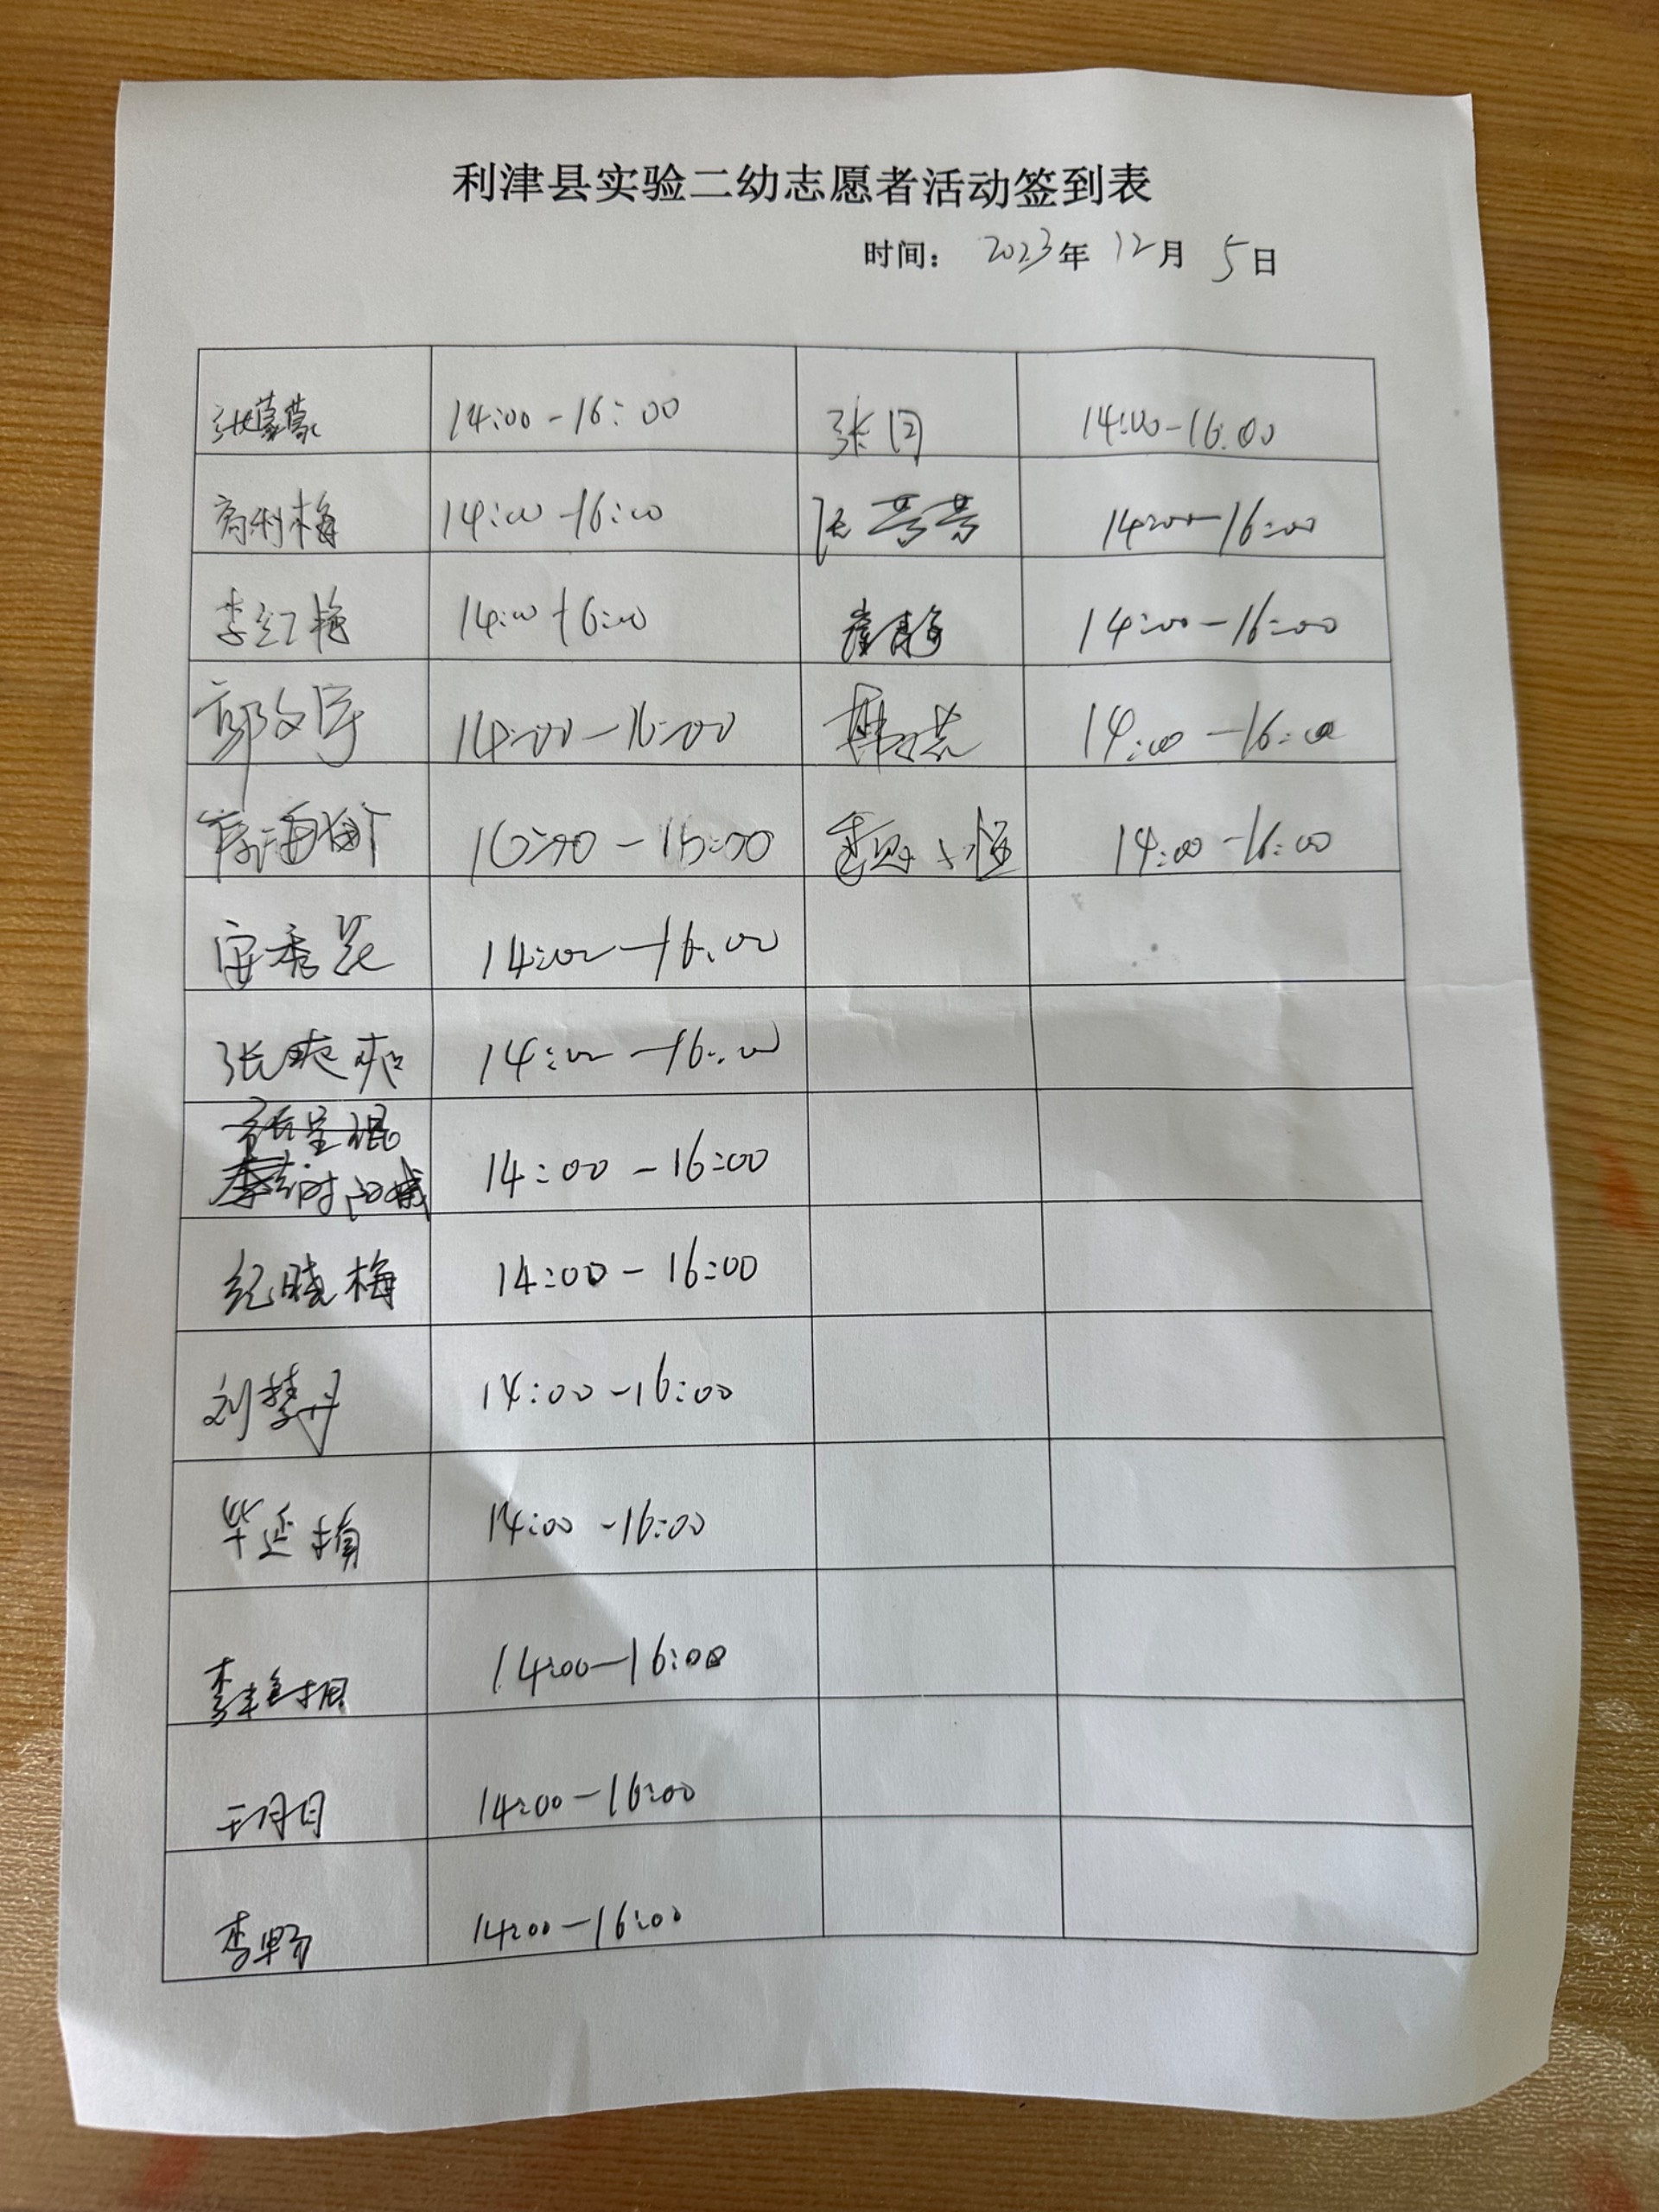 利津县实验二幼志愿者活动签到表
时间： 2023年 12月 5日
张蒙蒙 14:00-16:00 张 14:00-16:00
高利梅 14:00-16:00 张芸芸 14:00-16:00
李红梅 14:00-16:00 崔静 14:00-16:00
郭文 14:00-16:00 韩 14:00-16:00
崔海 16:00-16:00 14:00-16:00
秀 14:00-16:00
张 14:00-16:00
14:00-16:00
纪晓梅 14:00-16:00
刘慧丹 14:00-16:00
毕延楠 14:00-16:00
李 14:00-16:00
王 14:00-16:00
李野 14:00-16:00